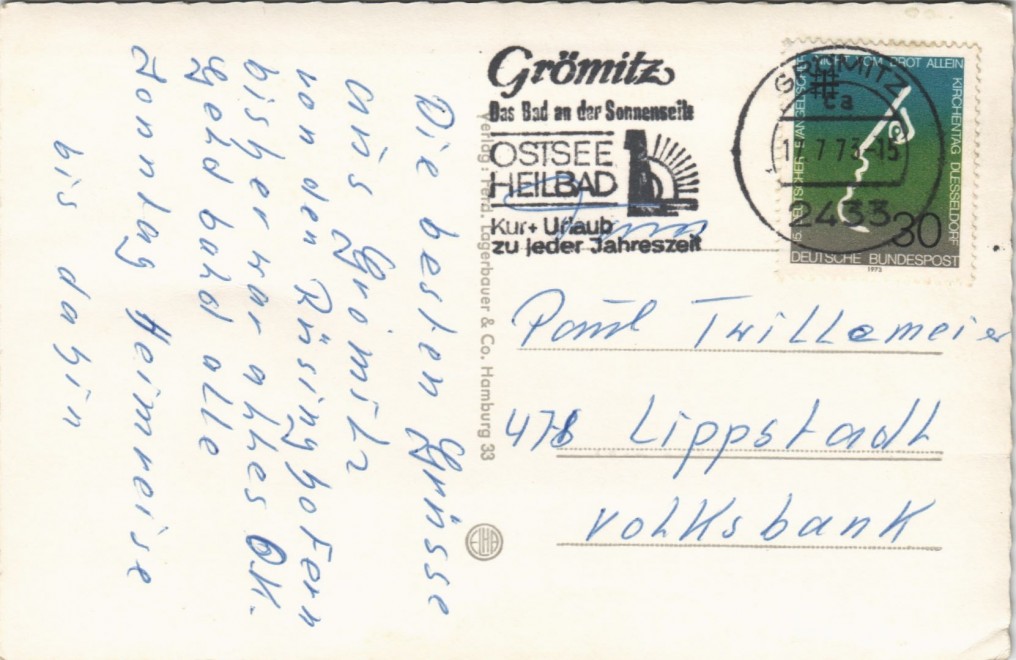 Die besten Grüsse
aus Grömitz
von den Rüsinghofern
bisher war alles OK.
Geld bald alle
Sonntag Heimreise
bis dahin
Verlag: Ferd. Lagerbauer & Co. Hamburg 33
Grömitz
Das Bad an der Sonnenseite
OSTSEE
HEILBAD
Kur + Urlaub
zu jeder Jahreszeit
GRÖMITZ
ca
7 73-15
2433
DEUTSCHER EVANGELISCHER KIRCHENTAG DUESSELDORF
NICHT VOM BROT ALLEIN
30
DEUTSCHE BUNDESPOST
1973
Paul Twillemeier
478 Lippstadt
Volksbank